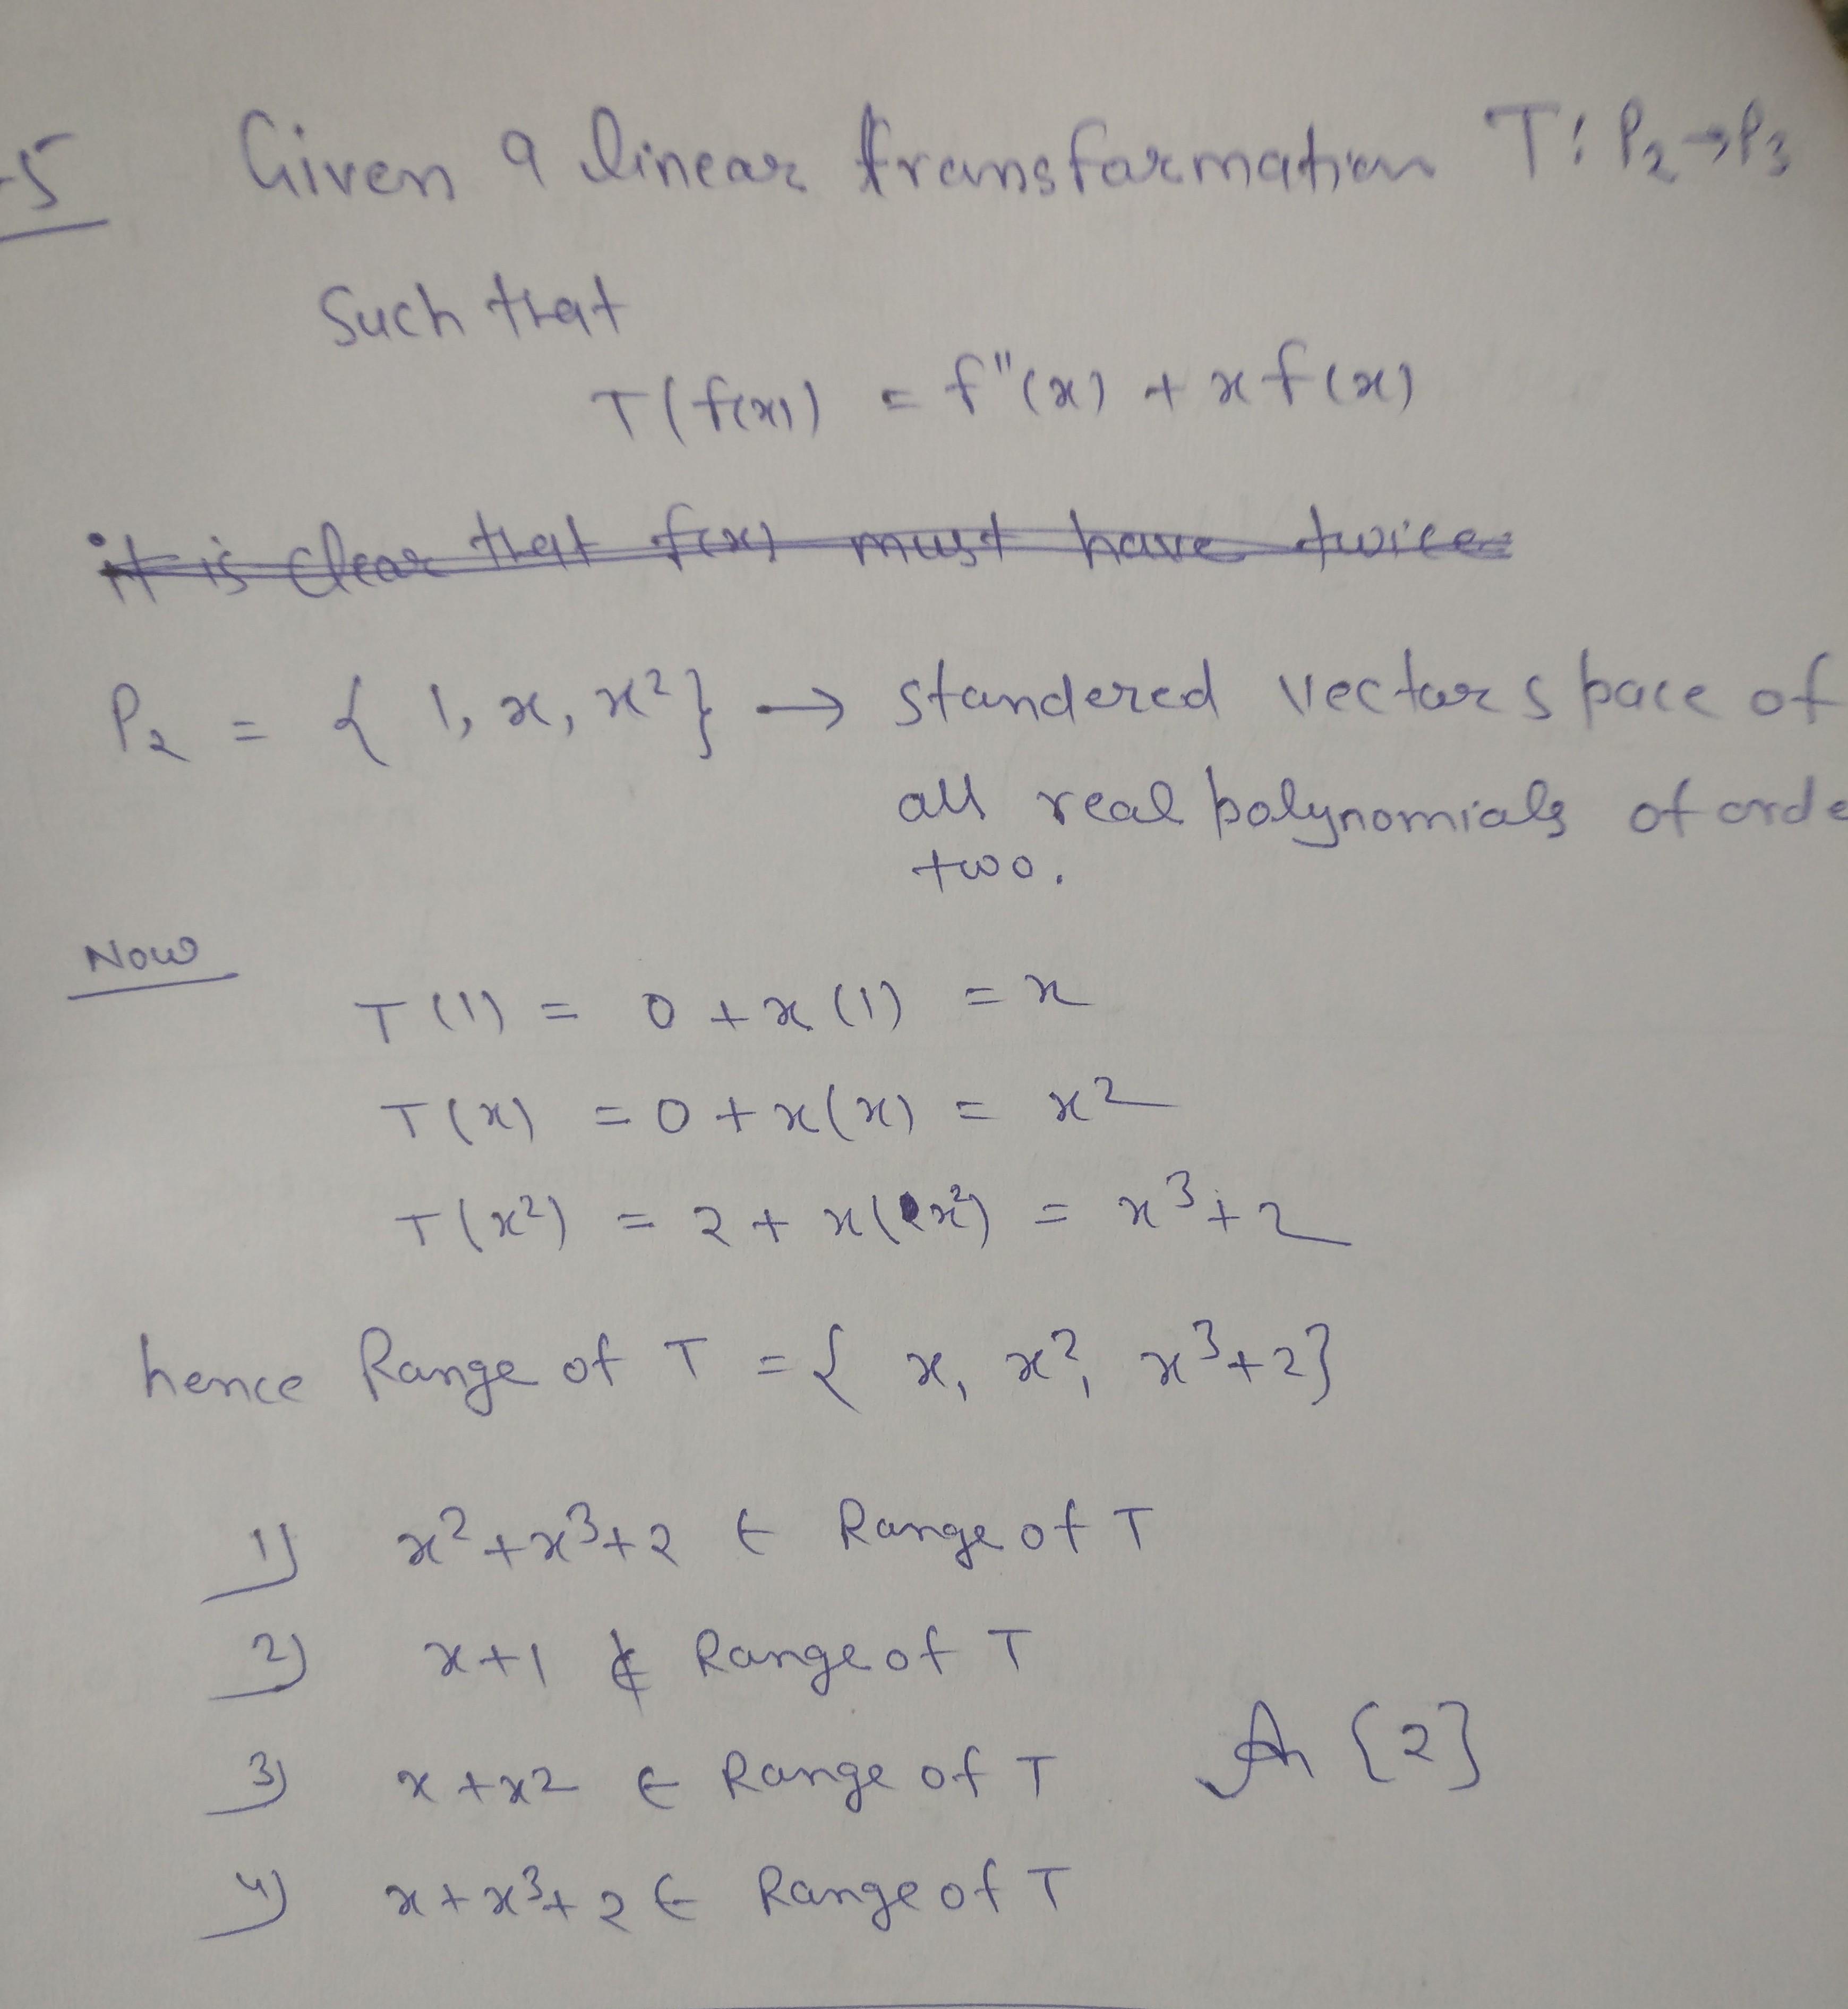 -5 Given a linear transformation T: P₂→P₃
Such that
T(f(x)) = f"(x) + x f(x)
it is clear that f(x) must have twice
P₂ = { 1, x, x² } → standered vector space of
all real polynomials of orde
two.
Now
T(1) = 0 + x(1) = x
T(x) = 0 + x(x) = x²
T(x²) = 2 + x(x²) = x³+2
hence Range of T = { x, x², x³+2}
1) x²+x³+2 ∈ Range of T
2) x+1 ∉ Range of T
3) x+x2 ∈ Range of T An {2}
4) x+x³+2 ∈ Range of T